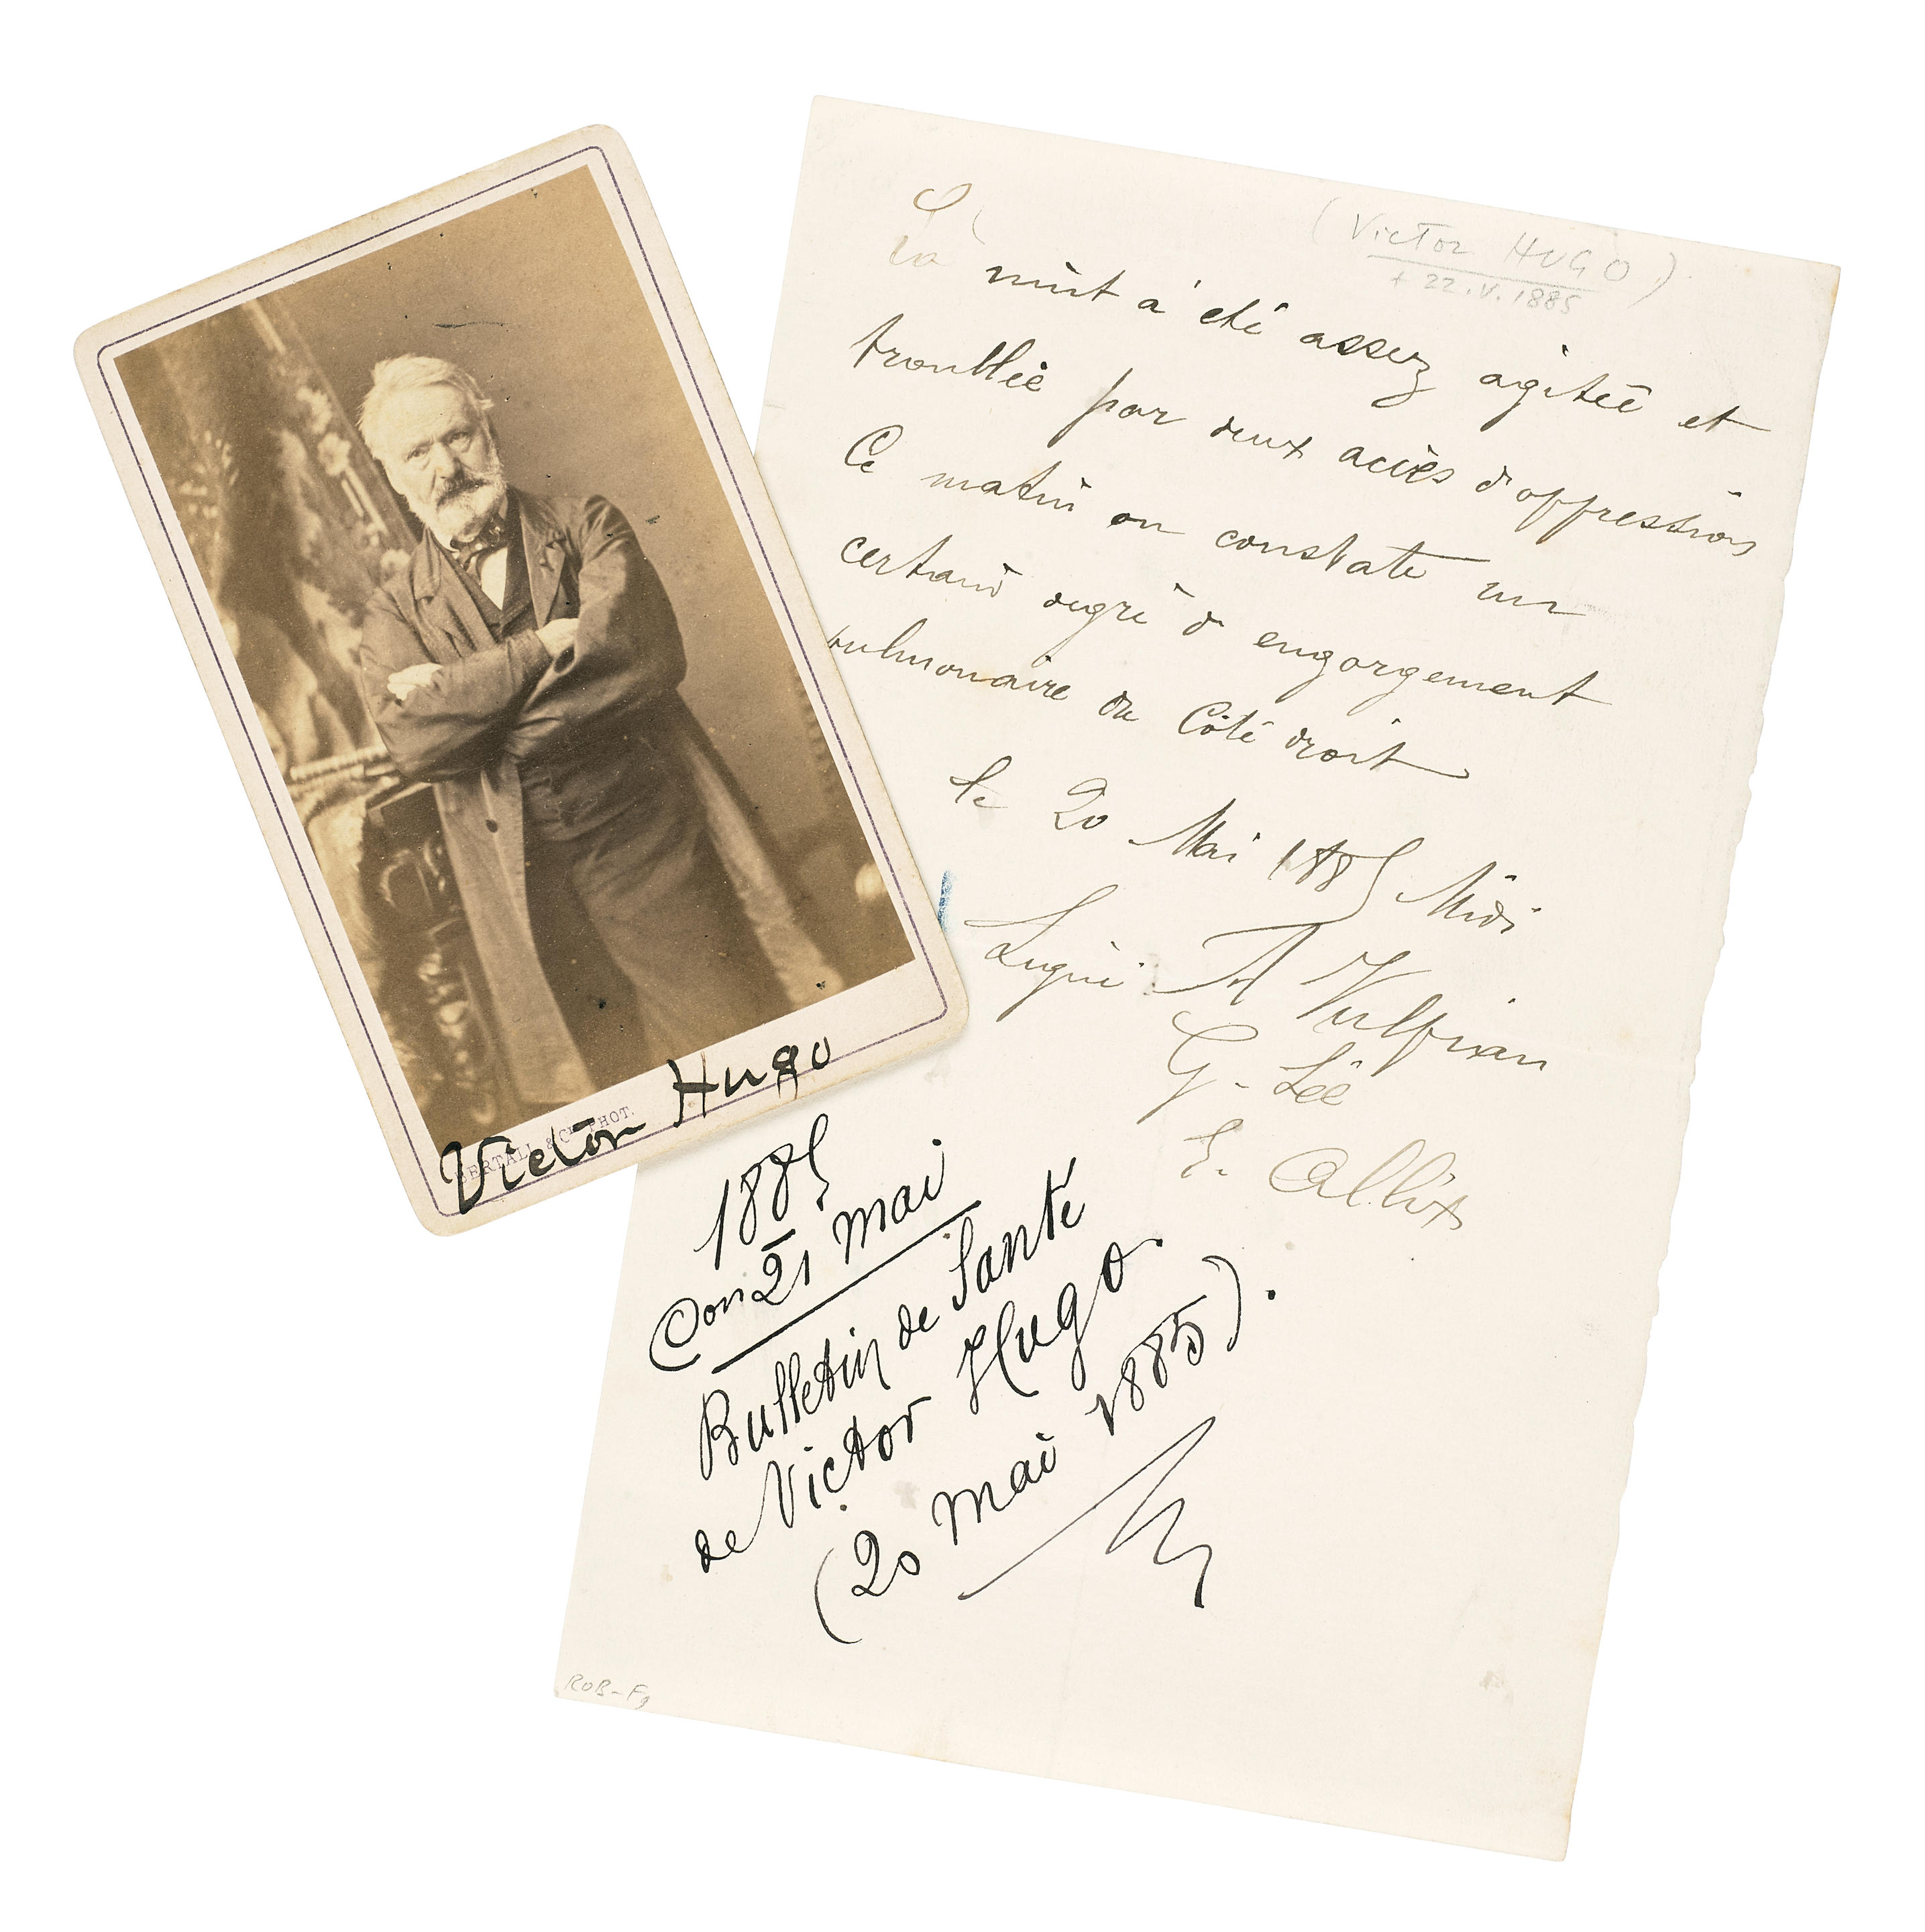 BERTALL & Cie PHOT.
Victor Hugo
(Victor HUGO)
+ 22.V.1885
La nuit a été assez agitée et
troublée par deux accès d'oppression
Ce matin on constate un
certain degré d'engorgement
pulmonaire du Côté droit
le 20 Mai 1885 Midi
Signé A Vulpian
G. Sée
E. Allix
1885
Don 21 mai
Bulletin de Santé
de Victor Hugo.
(20 mai 1885).
ROB-Fg